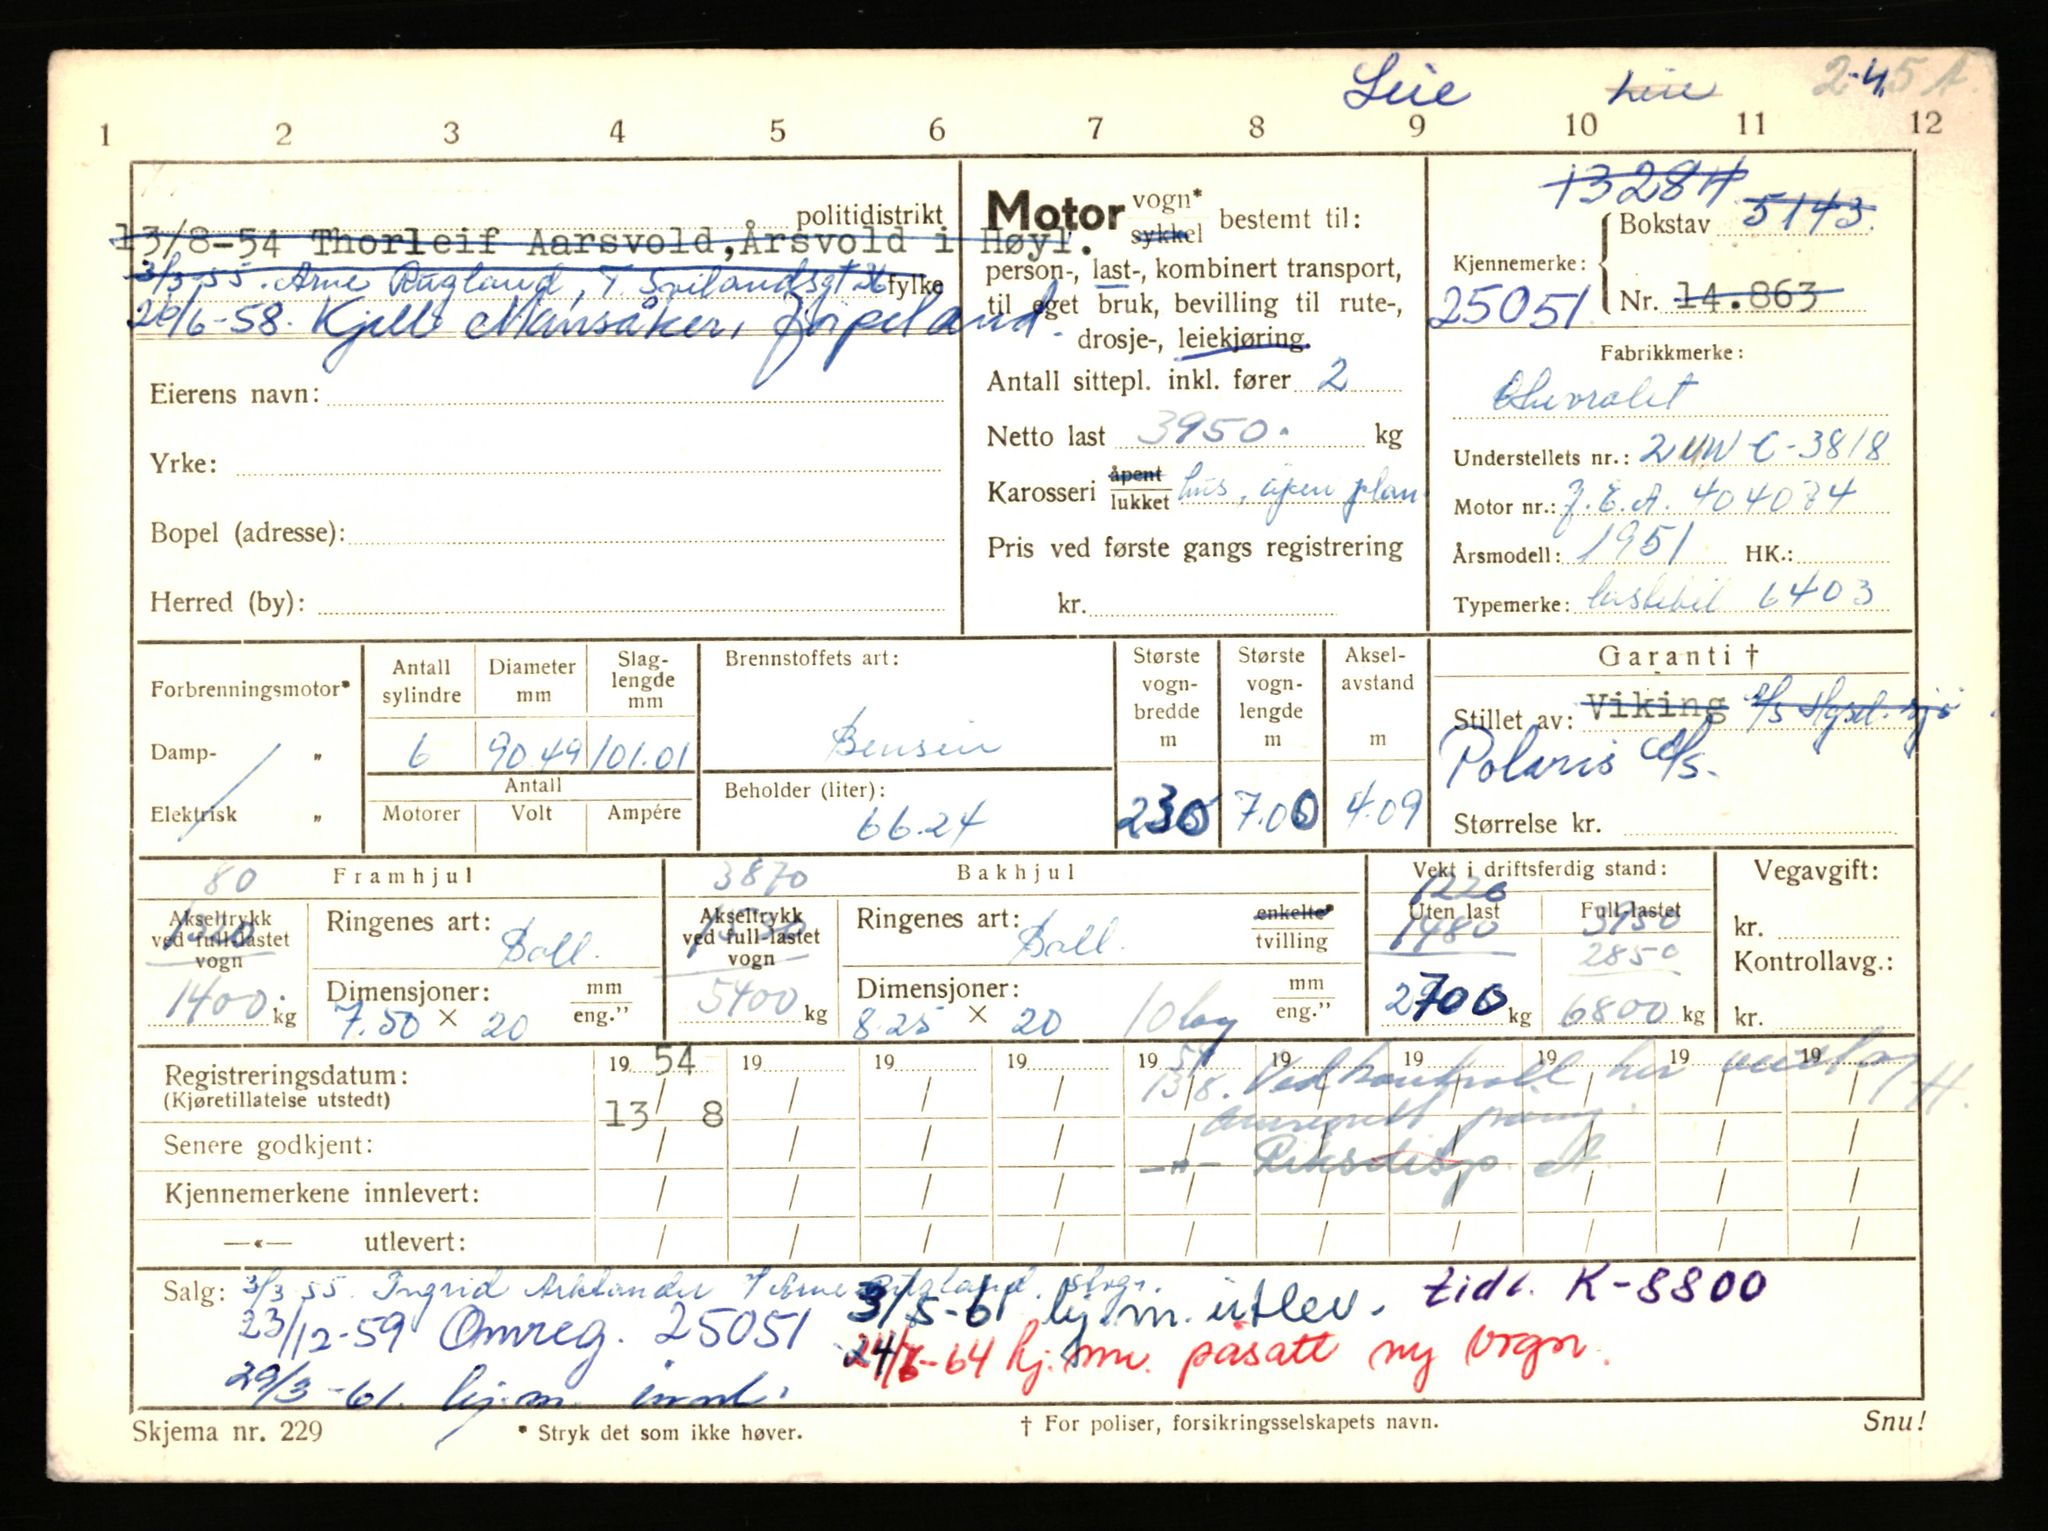 Leie Leie 2-4.
1 2 3 4 5 6 7 8 9 10 11 12
politidistrikt
13/8-54 Thorleif Aarsvold, Årsvold i Høyl.
3/3-55. Arne Rugland, T. Svilandsgt fylke
26/6-58. Kjell Månsåker, Jørpeland.
Eierens navn:
Yrke:
Bopel (adresse):
Herred (by):
Motor vogn* sykkel bestemt til:
person-, last-, kombinert transport,
til eget bruk, bevilling til rute-,
drosje-, leiekjøring.
Antall sittepl. inkl. fører 2
Netto last 3950. kg
Karosseri åpent lukket hus, åpen plan
Pris ved første gangs registrering
kr.
13284
Bokstav 5143.
Kjennemerke:
25051 Nr. 14.863
Fabrikkmerke:
Chevrolet
Understellets nr.: 2UWC-3818
Motor nr.: J.E.A. 404074
Årsmodell: 1951 HK.:
Typemerke: lastebil 6403
Forbrenningsmotor*
Damp- „
Elektrisk „
Antall sylindre Diameter mm Slag-lengde mm
6 90.49 101.01
Antall
Motorer Volt Ampére
Brennstoffets art:
Bensin
Beholder (liter):
66.24
Største vogn-bredde m
230
Største vogn-lengde m
7.00
Aksel-avstand m
4.09
Garanti †
Stillet av: Viking
Polaris A/S.
Størrelse kr.
80 Framhjul
Akseltrykk ved full-lastet vogn
1400. kg
Ringenes art: Ball.
Dimensjoner: mm eng."
7.50 × 20
3870 Bakhjul
Akseltrykk ved full-lastet vogn
5400 kg
Ringenes art: Ball. enkelte* tvilling
Dimensjoner: mm eng."
8.25 × 20 10 lag
Vekt i driftsferdig stand:
1220
Uten last Full-lastet
1480 3950
2850
2700 kg 6800 kg
Vegavgift:
kr.
Kontrollavg.:
kr.
Registreringsdatum: 19 54 19 19 19 19 54 19 19 19 19 19
(Kjøretillatelse utstedt) 13 8 13/8. Ved kontroll
Senere godkjent:
Kjennemerkene innlevert:
—«— utlevert:
Salg: 3/3 55. Ingrid Arne Rugland. Stvgr.
23/12-59 Omreg. 25051
29/3-61. kj.m. innl.
3/5-61 kj.m. utlev. tidl. K-8800
24/6-64 kj.m. påsatt ny vogn.
Skjema nr. 229 * Stryk det som ikke høver. † For poliser, forsikringsselskapets navn. Snu!